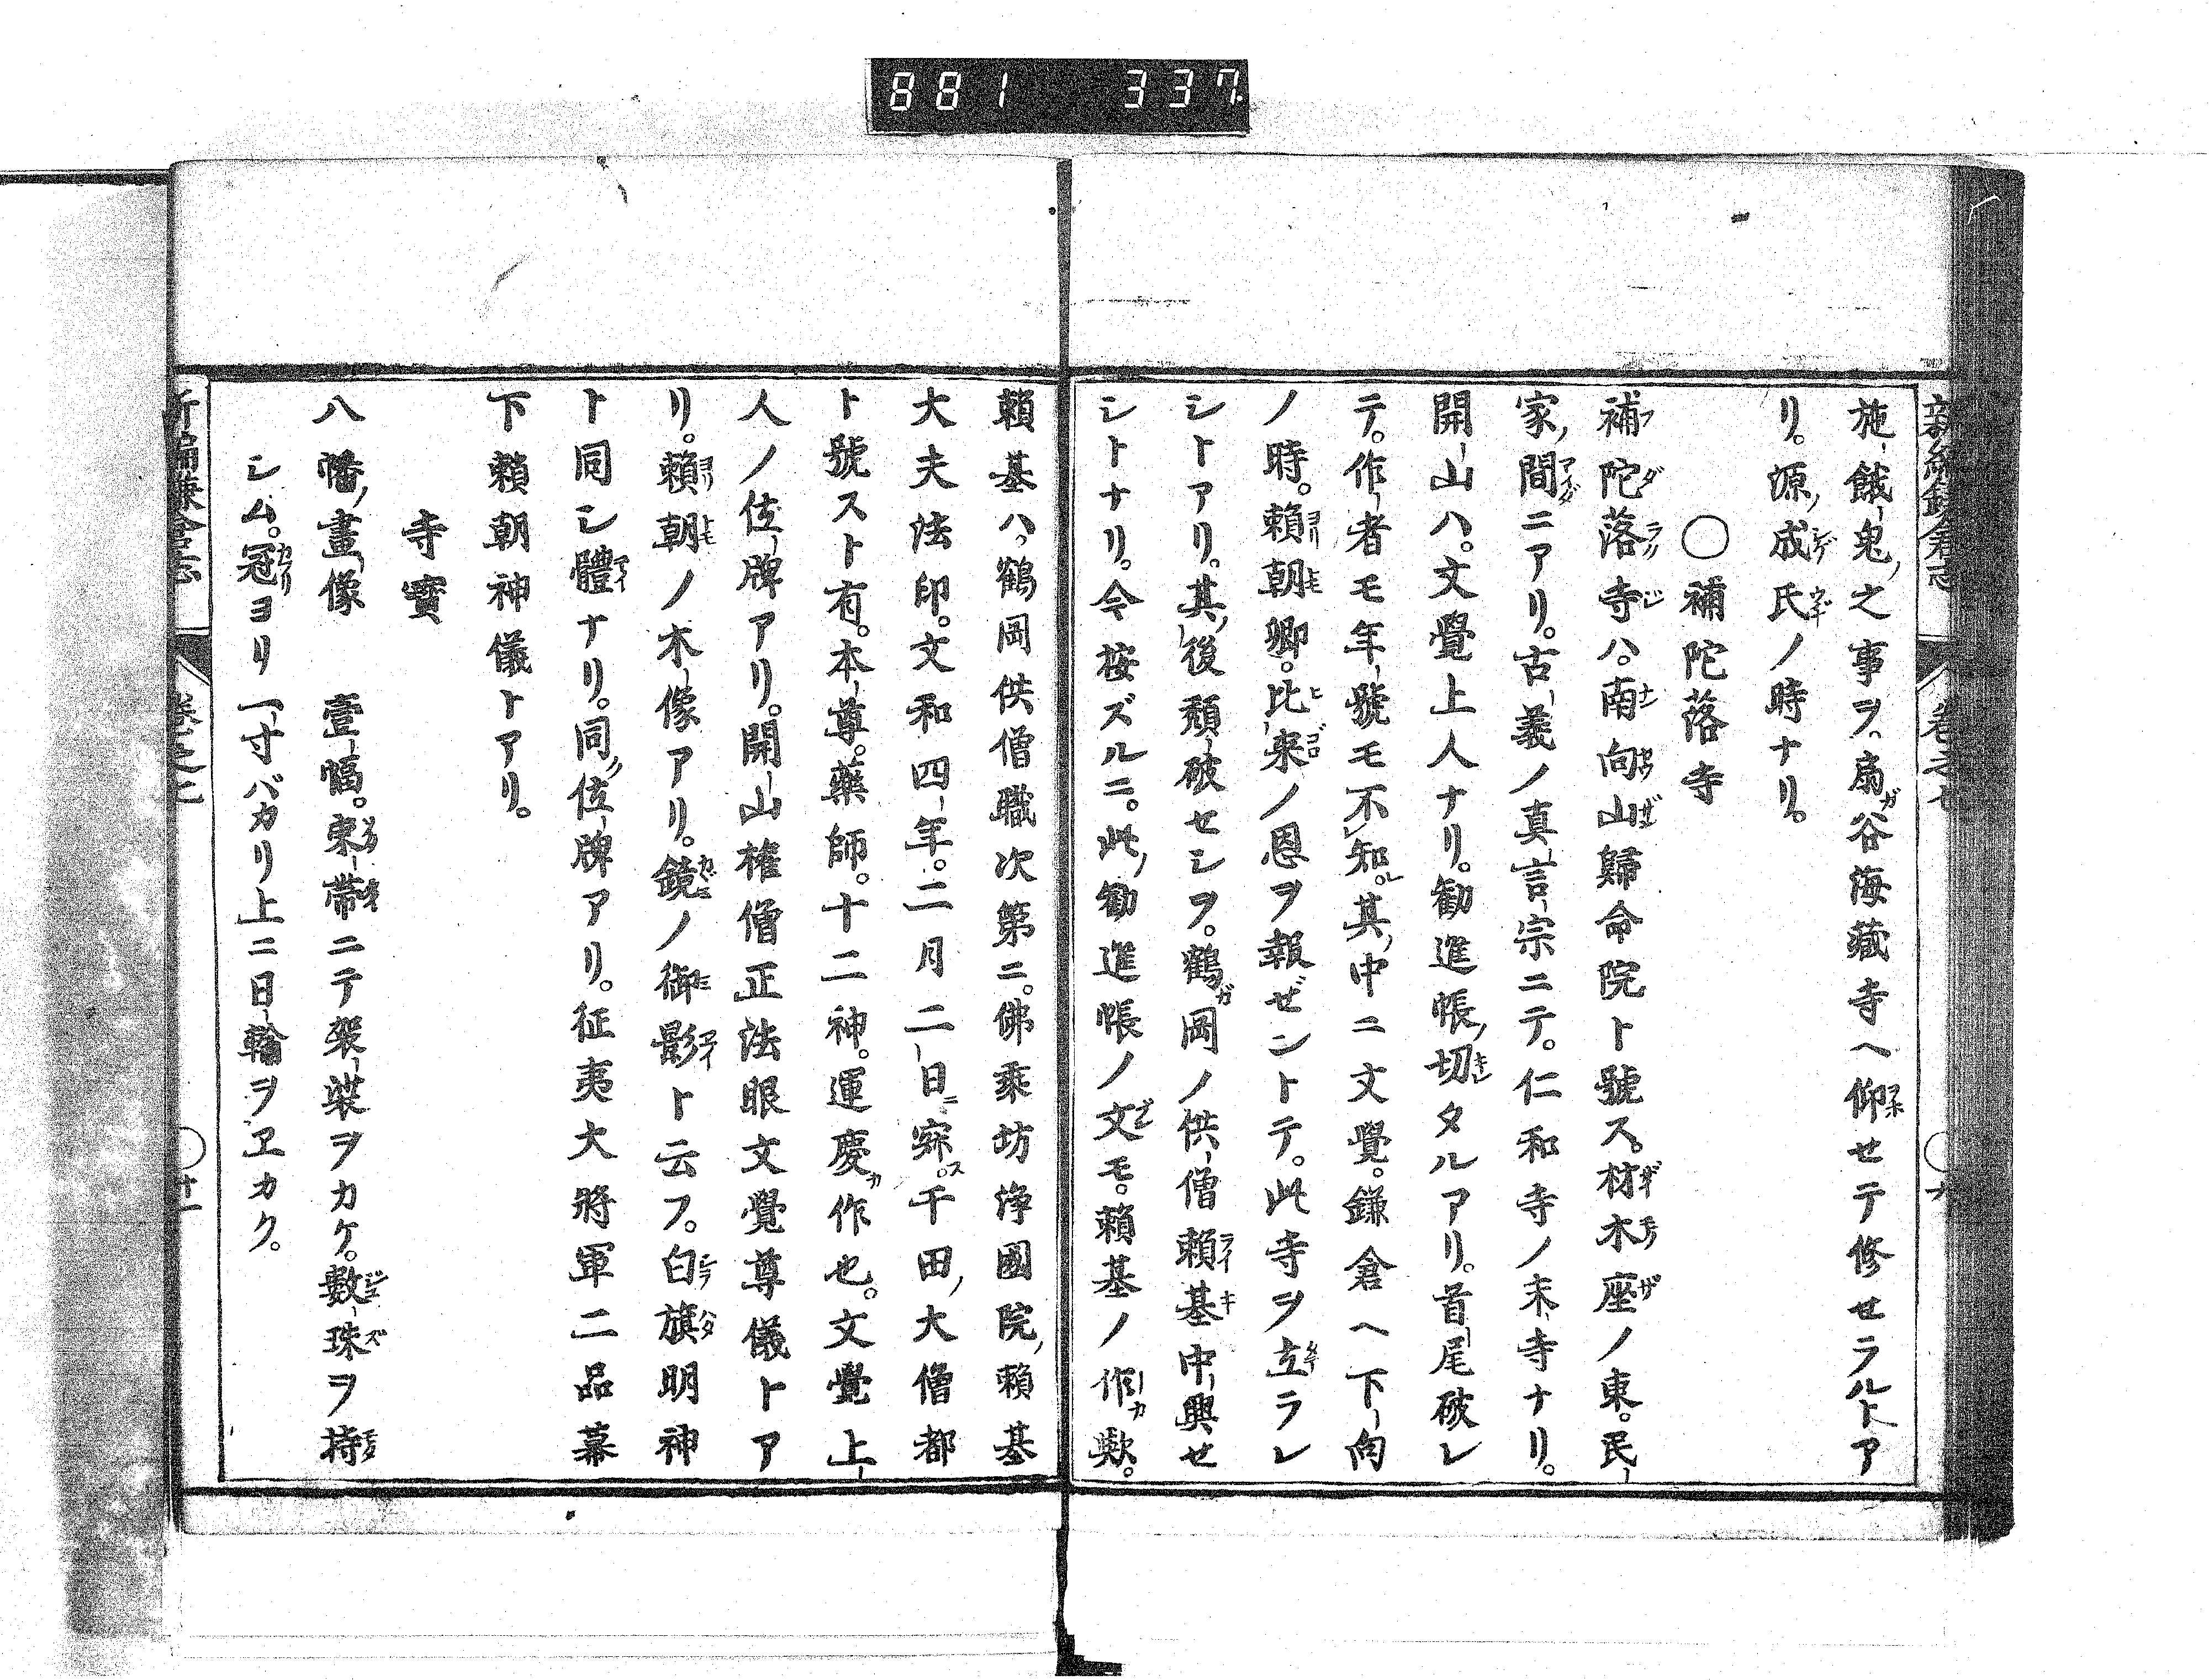 881 337
新編鎌倉志 卷之七
施餓鬼之事ヲ、扇谷海藏寺ヘ仰セテ修セラルトア
リ。源成氏ノ時ナリ。
〇補陀落寺
補陀落寺ハ。南向山歸命院ト號ス。材木座ノ東。民
家間ニアリ。古義ノ真言宗ニテ。仁和寺ノ末寺ナリ。
開山ハ。文覺上人ナリ。勸進帳ノ切タルアリ。首尾破レ
テ。作者モ年號モ不知。其中ニ文覺。鎌倉ヘ下向
ノ時。賴朝卿。比來ノ恩ヲ報ゼントテ。此寺ヲ立ラレ
シトアリ。其後頽破セシヲ。鶴岡ノ供僧賴基中興セ
シトナリ。今按ズルニ。此勸進帳ノ文モ。賴基ノ作歟。
賴基ハ。鶴岡供僧職次第ニ。佛乘坊淨國院賴基
大夫法印。文和四年。二月二日寂。千田大僧都
ト號スト有。本尊。藥師。十二神。運慶作也。文覺上
人ノ位牌アリ。開山權僧正法眼文覺尊儀トア
リ。賴朝ノ木像アリ。鏡ノ御影ト云フ。白旗明神
ト同シ體ナリ。同位牌アリ。征夷大將軍二品幕
下賴朝神儀トアリ。
寺寶
八幡畫像 壹幅。束帶ニテ袈裟ヲカケ。數珠ヲ持
シム。冠ヨリ一寸バカリ上ニ日輪ヲヱカク。
新編鎌倉志